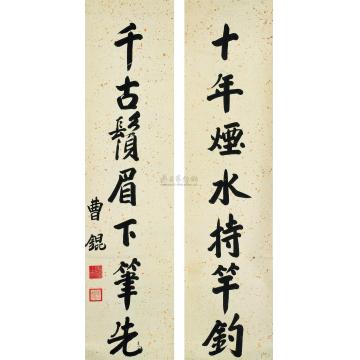 十年煙水持竿釣
千古鬚眉下筆先
曹錕